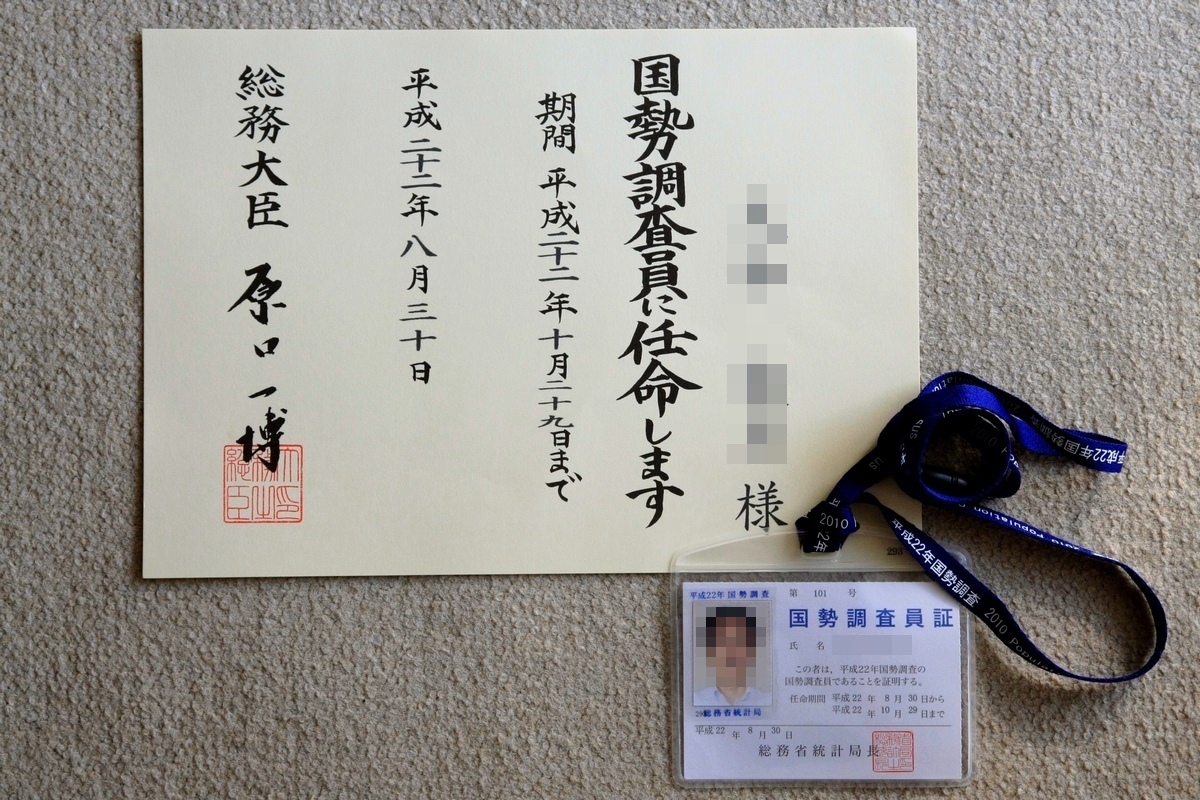 様
国勢調査員に任命します
期間 平成二十二年十月二十九日まで
平成二十二年八月三十日
総務大臣 原口一博
平成22年国勢調査
第 101 号
国勢調査員証
氏名
この者は、平成22年国勢調査の
国勢調査員であることを証明する。
任命期間 平成22年8月30日から
平成22年10月29日まで
総務省統計局
平成22年8月30日
総務省統計局長
2010
平成22年国勢調査 2010 Popula
平成22年国勢調
2010 Population